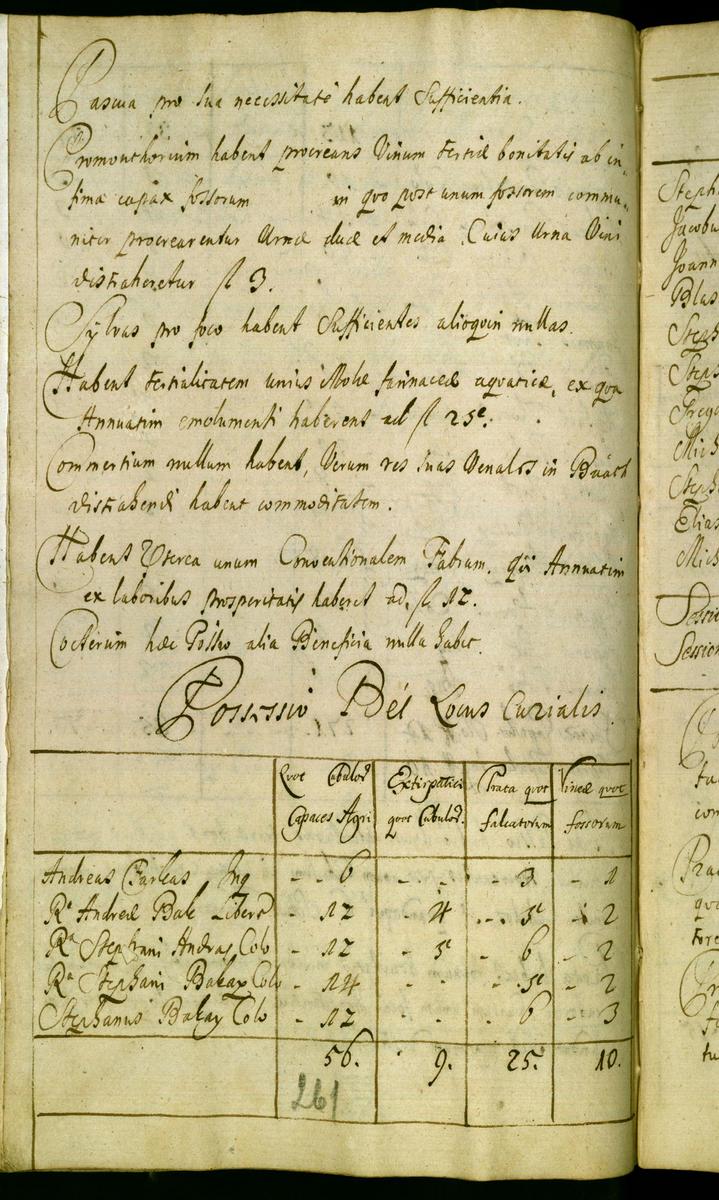 Pascua pro sua necessitate habent Sufficientia.
Promonthorium habent procreans Vinum tertiæ bonitatis ab in-
fima capax fossorum in quo post unum fossorem commu-
niter procrearentur Urnæ duæ et media. Cuius Urna Vini
distraheretur fl 3.
Sylvas pro foco habent Sufficientes alioquin nullas.
Habent tertialitatem unius Molæ farinaceæ aquaticæ, ex qua
Annuatim emolumenti haberent ad fl 25.
Commertium nullum habent, Verum res suas Venales in
distrahendi habent commoditatem.
Habent unum Conventionalem Fabrum. qui Annuatim
ex laboribus prosperitatis haberet ad. fl 12.
Cæterum hæc Posso alia Beneficia nulla habet.
Possessio Dél Locus Curialis
Quot Cubulor Capaces Agri
Extirpatici quot Cubulor.
Prata quot falcatorum
Vineæ quot fossorum
Andreas Farkas Inq - - 6 - - - 3 - 1
Ra Andreæ Bak Libert - 12 - 4 - - 5 - 2
Ra Stephani Andras Colo - 12 - 5 - 6 - 2
Ra Stephani Bakay Colo - 14 - - - 5 - 2
Stephanus Bakay Colo - 12 - - - 6 - 3
56. 9. 25. 10.
261
Steph
Jacobu
Joann
Blas
Steph
Steph
Grego
Mich
Steph
Elias
Mich
Sessio
Session